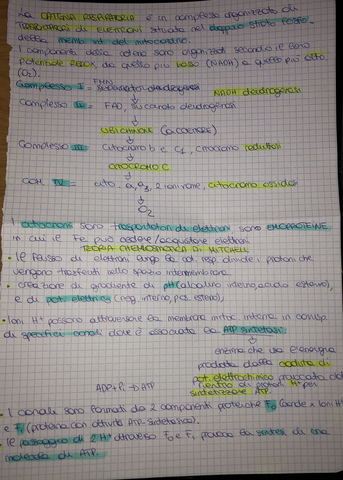 La CATENA RESPIRATORIA è un complesso organizzato di
TRASPORTATORI di ELETTRONI situata nel doppio strato fosfo-
della memb. int. del mitocondrio.
I componenti della catena sono organizzati secondo il loro
potenziale REDOX da quello più basso (NADH) a quello più alto
(O2).
FMN
Complesso I = NADH deidrogenasi
Complesso II = FAD, succinato deidrogenasi
↓
UBICHINONE (o COENZ Q)
↓
Complesso III = citocromo b e C1, citocromo reduttasi
↓
CITOCROMO C
↓
COM. IV = cito. a, a3, 2 ioni rame, citocromo ossidasi
↓
O2
I citocromi sono trasportatori di elettroni sono EMOPROTEINE
in cui il Fe può cedere/acquistare elettroni
TEORIA CHEMIOSMOTICA DI MITCHELL
• Il flusso di elettroni lungo la cat. resp. divide i protoni che
vengono trasferiti nello spazio intermembrana.
• creazione di gradiente di pH (alcalino interno, acido esterno),
e di pot. elettrico (neg. interno, pos. esterno).
• Ioni H+ possono attraversare la membrana mitoc. interna in
di specifici canali dove è associata la ATP sintetasi.
↓
enzima che usa l'energia
prodotta dalla caduta di
pot. elettrochimico provocato dal
di protoni H+ per
sintetizzare ATP.
ADP + Pi → ATP
• I canali sono formati da 2 componenti proteiche F0 (canale x ioni H+)
e F1 (proteina con attività ATP-sintetasica).
• Il passaggio di 2 H+ attraverso F0 e F1 provoca la sintesi di una
molecola di ATP.